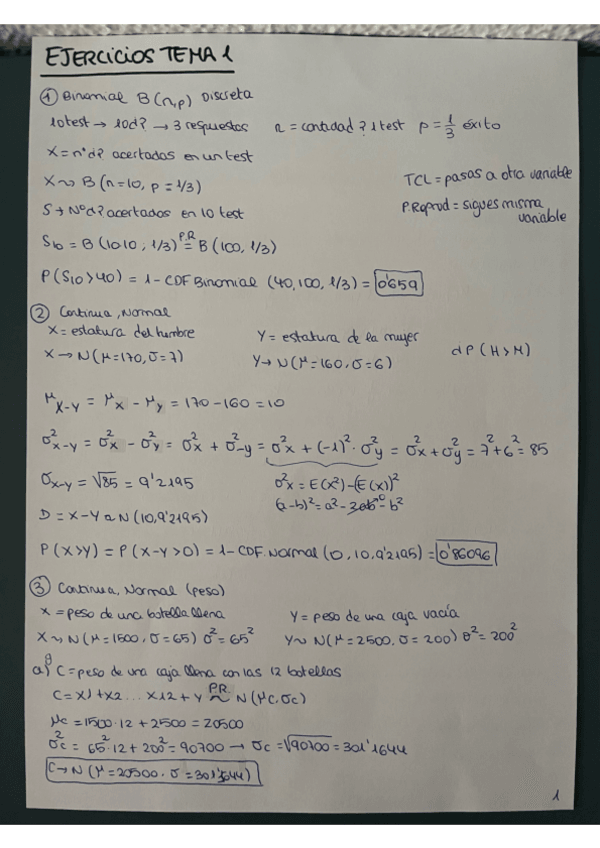 EJERCICIOS TEMA 1
① Binomial B(n,p) Discreta
10 test → 10 d? → 3 respuestas n = cantidad ? 1 test p = 1/3 éxito
X = nº d? acertados en un test
X ~ B (n=10, p = 1/3)
TCL = pasas a otra variable
S → Nº d? acertados en 10 test
P.Reprod = sigues misma variable
S10 = B (10·10, 1/3) P.R = B (100, 1/3)
P(S10 > 40) = 1 - CDF Binomial (40, 100, 1/3) = 0'659
② Continua, Normal
X = estatura del hombre Y = estatura de la mujer
X → N(μ=170, σ=7) Y → N(μ=160, σ=6) d P(H>M)
μ X-Y = μx - μy = 170 - 160 = 10
σ²x-y = σ²x - σ²y = σ²x + σ²-y = σ²x + (-1)² · σ²y = σ²x + σ²y = 7² + 6² = 85
σx-y = √85 = 9'2195 σ²x = E(x²) - (E(x))²
(a-b)² = a² - 2ab⁰ = b²
D = X-Y ~ N (10, 9'2195)
P(X>Y) = P(X-Y>0) = 1 - CDF. Normal (0, 10, 9'2195) = 0'86096
③ Continua, Normal (peso)
X = peso de una botella llena Y = peso de una caja vacía
X ~ N(μ=1500, σ=65) σ² = 65² Y ~ N(μ=2500, σ=200) σ² = 200²
a) C = peso de una caja llena con las 12 botellas
C = X1 + X2 ... X12 + Y P.R. ~ N(μc, σc)
μc = 1500·12 + 2500 = 20500
σ²c = 65²·12 + 200² = 90700 → σc = √90700 = 301'1644
C → N (μ = 20500, σ = 301'1644)
1